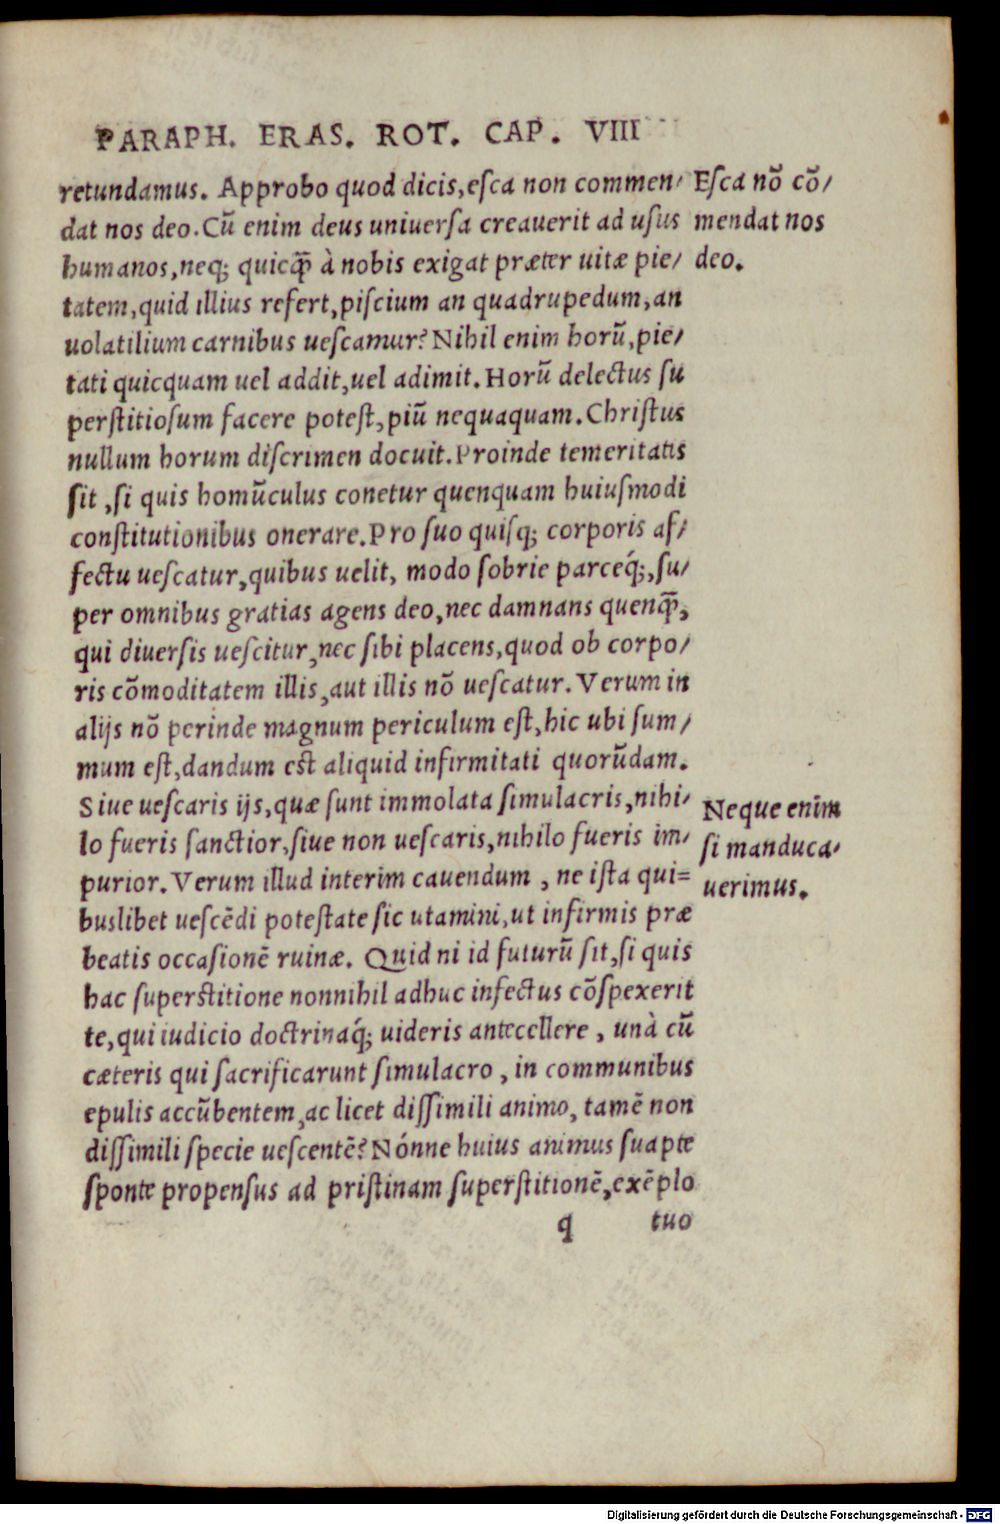 PARAPH. ERAS. ROT. CAP. VIII
retundamus. Approbo quod dicis, esca non commen/
dat nos deo. Cũ enim deus uniuersa creauerit ad usus
humanos, neq; quicq̃ à nobis exigat præter uitæ pie/
tatem, quid illius refert, piscium an quadrupedum, an
uolatilium carnibus uescamur? Nihil enim horũ, pie/
tati quicquam uel addit, uel adimit. Horũ delectus su
perstitiosum facere potest, piũ nequaquam. Christus
nullum horum discrimen docuit. Proinde temeritatis
sit, si quis homũculus conetur quenquam huiusmodi
constitutionibus onerare. Pro suo quisq; corporis af/
fectu uescatur, quibus uelit, modo sobrie parceq́;, su/
per omnibus gratias agens deo, nec damnans quenq̃,
qui diuersis uescitur, nec sibi placens, quod ob corpo/
ris cõmoditatem illis, aut illis nõ uescatur. Verum in
alijs nõ perinde magnum periculum est, hic ubi sum/
mum est, dandum est aliquid infirmitati quorũdam.
Siue uescaris ijs, quæ sunt immolata simulacris, nihi/
lo fueris sanctior, siue non uescaris, nihilo fueris im/
purior. Verum illud interim cauendum, ne ista qui=
buslibet uescẽdi potestate sic utamini, ut infirmis præ
beatis occasionẽ ruinæ. Quid ni id futurũ sit, si quis
hac superstitione nonnihil adhuc infectus cõspexerit
te, qui iudicio doctrinaq́; uideris antecellere, unà cũ
cæteris qui sacrificarunt simulacro, in communibus
epulis accũbentem, ac licet dissimili animo, tamẽ non
dissimili specie uescentẽ? Nónne huius animus suapte
sponte propensus ad pristinam superstitionẽ, exẽplo
q tuo
Esca nõ cõ/
mendat nos
deo.
Neque enim
si manduca/
uerimus.
Digitalisierung gefördert durch die Deutsche Forschungsgemeinschaft - DFG